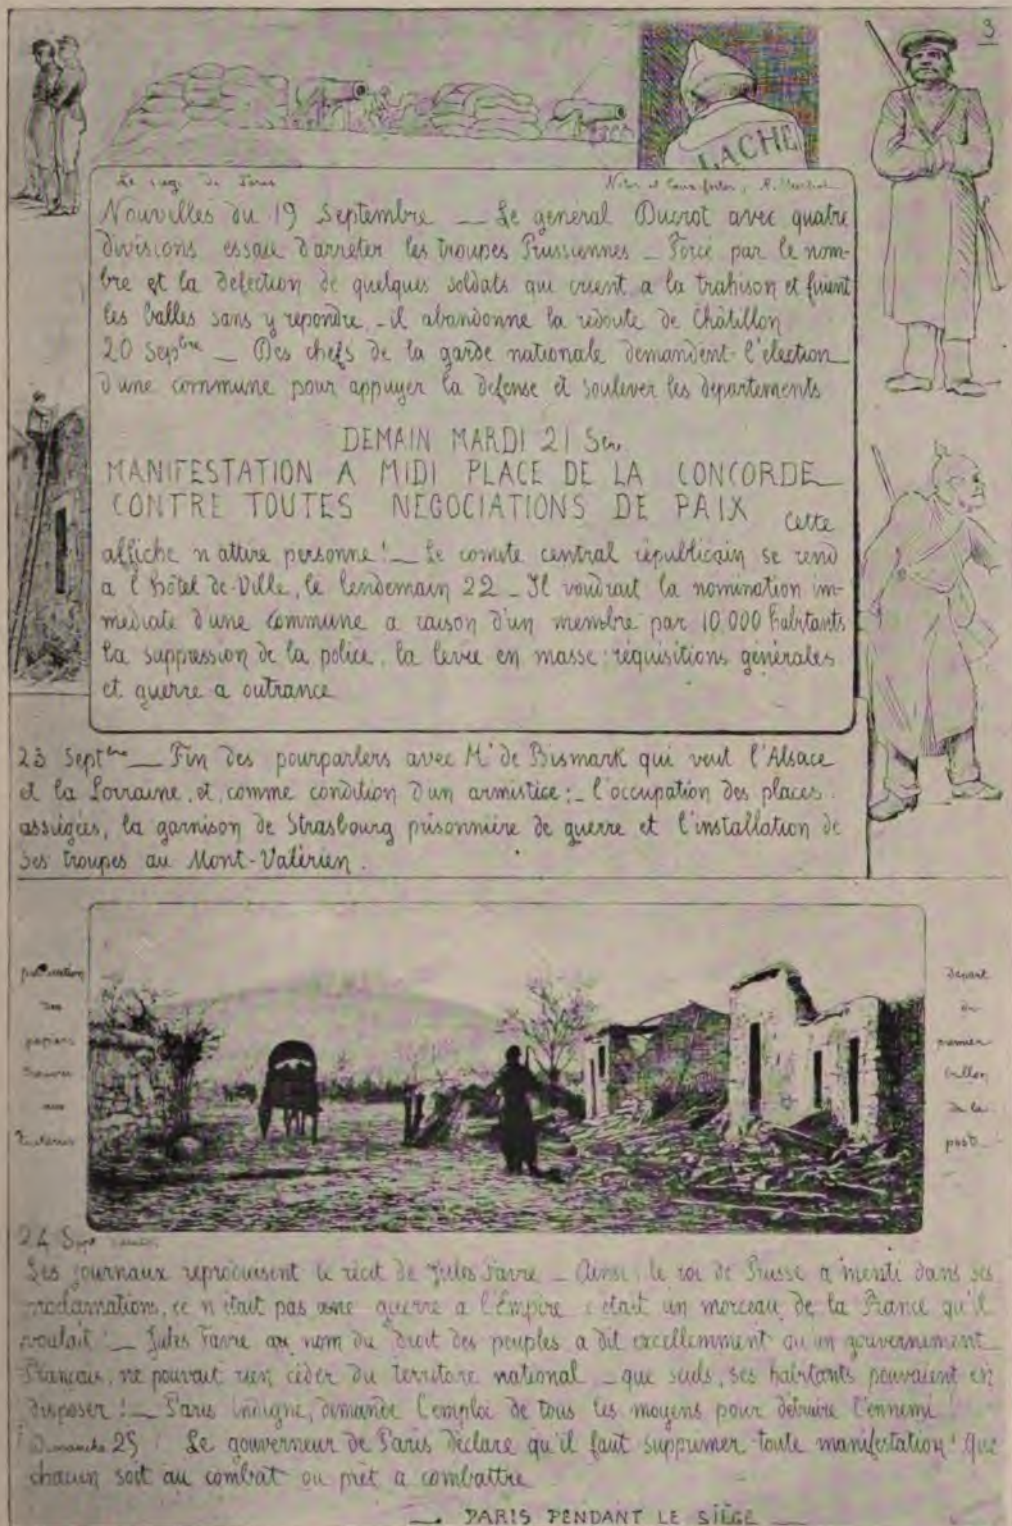 3
LACHE
Le siege de Paris
Nouvilles du 19 Septembre — Le general Ducrot avec quatre
divisions essaie d'arreter les troupes Prussiennes — Forcé par le nom-
bre et la defection de quelques soldats qui crient a la trahison et fuient
les balles sans y repondre, — il abandonne la redoute de Châtillon
20 Septbre — Des chefs de la garde nationale demandent l'election
d'une commune pour appuyer la defense et soulever les departements
DEMAIN MARDI 21 Sbre
MANIFESTATION A MIDI PLACE DE LA CONCORDE
CONTRE TOUTES NEGOCIATIONS DE PAIX cette
affiche n'attire personne! — Le comite central républicain se rend
a l'hôtel-de-Ville, le lendemain 22 — Il voudrait la nomination im-
mediate d'une commune a raison d'un membre par 10,000 habitants
la suppression de la police, la levée en masse: réquisitions générales
et guerre a outrance
23 Septbre — Fin des pourparlers avec Mr de Bismark qui veut l'Alsace
et la Lorraine, et, comme condition d'un armistice; — l'occupation des places
assiégées, la garnison de Strasbourg prisonnière de guerre et l'installation de
ses troupes au Mont-Valérien.
des
papiers
trouvés
aux
Tuileries
depart
du
premier
ballon
de la
poste
24
Les journaux reproduisent le récit de Jules Favre — Ainsi, le roi de Prusse a menti dans ses
proclamations, ce n'était pas une guerre a l'Empire c'était un morceau de la France qu'il
voulait! — Jules Favre au nom du droit des peuples a dit excellemment qu'un gouvernement
Français, ne pouvait rien céder du territoire national — que seuls, ses habitants pouvaient en
disposer! — Paris indigné, demande l'emploi de tous les moyens pour détruire l'ennemi!
Dimanche 25 Le gouverneur de Paris déclare qu'il faut supprimer toute manifestation! Que
chacun soit au combat ou prêt a combattre
— PARIS PENDANT LE SIÈGE —